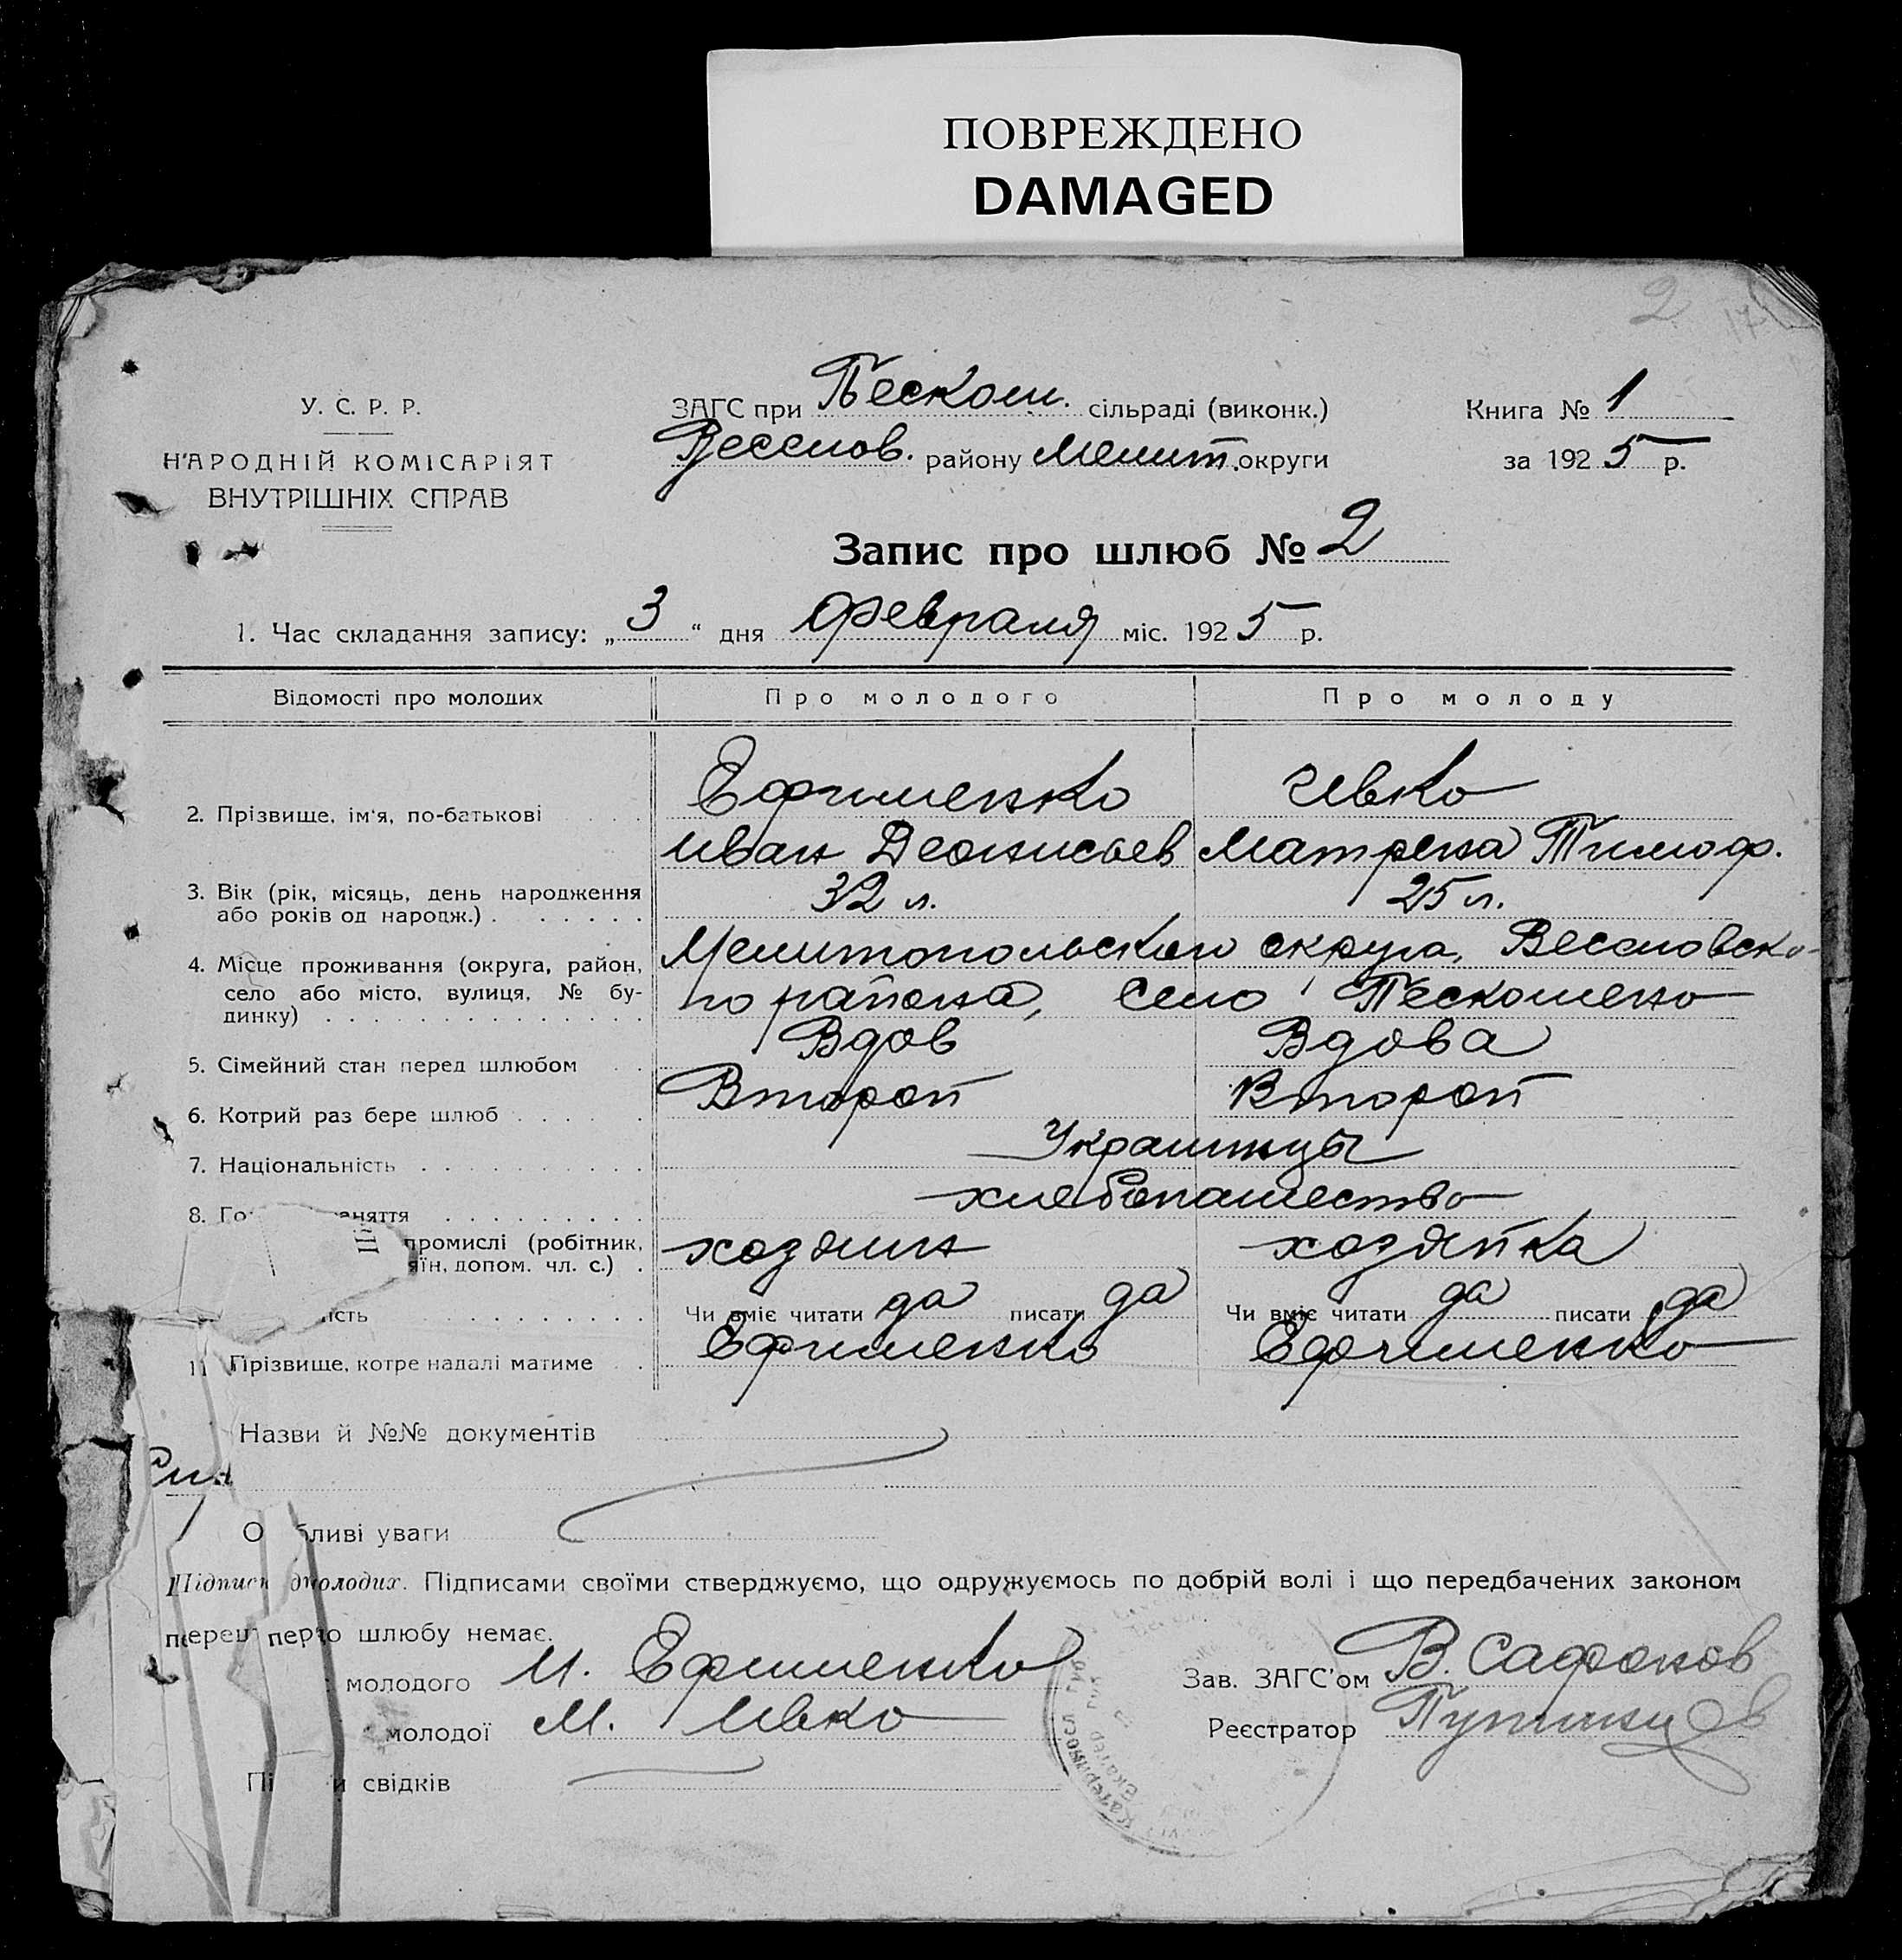 ПОВРЕЖДЕНО
DAMAGED
2
17
У. С. Р. Р.
НАРОДНІЙ КОМІСАРІЯТ
ВНУТРІШНІХ СПРАВ
ЗАГС при Песком. сільраді (виконк.)
Веселов. району Мелит. округи
Книга № 1
за 1925 р.
Запис про шлюб № 2
1. Час складання запису: „3“ дня февраля міс. 1925 р.
Відомості про молодих Про молодого Про молоду
2. Прізвище, ім'я, по-батькові Ефименко Ивко
Иван Деонисьев Матрена Тимоф.
3. Вік (рік, місяць, день народження 32 л. 25 л.
або років од народж.)
4. Місце проживання (округа, район, Мелитопольского округа, Веселовско-
село або місто, вулиця, № бу- го района, село Пескошено
динку)
5. Сімейний стан перед шлюбом Вдов Вдова
6. Котрий раз бере шлюб Второй Второй
7. Національність Украинцы
8. Го аняття хлебопашество
промислі (робітник, хозяин хозяйка
яїн, допом. чл. с.)
ість Чи вміє читати да писати да Чи вміє читати да писати да
11 Прізвище, котре надалі матиме Ефименко Ефименко
Назви й №№ документів
О бливі уваги
Підписи молодих. Підписами своїми стверджуємо, що одружуємось по добрій волі і що передбачених законом
переш перто шлюбу немає.
молодого И. Ефименко
Зав. ЗАГС'ом В. Сафонов
молодої М. Ивко
Реєстратор
Пі и свідків